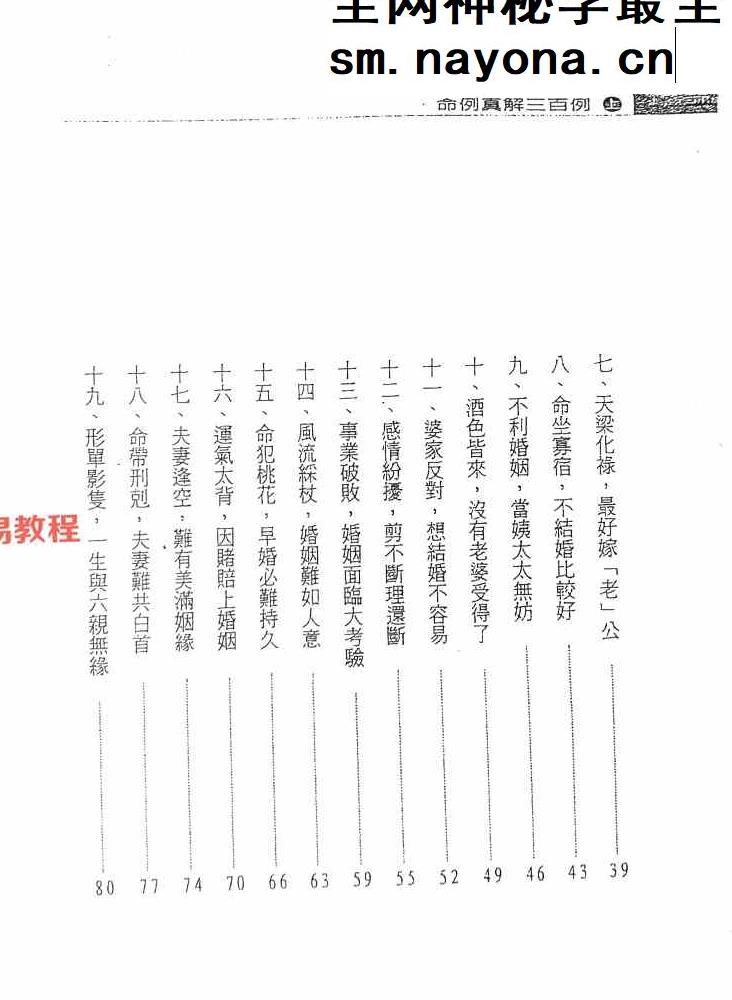 全网神秘学最全
sm.nayona.cn
命例真解三百例 上
七、天梁化祿，最好嫁「老」公 39
八、命坐寡宿，不結婚比較好 43
九、不利婚姻，當姨太太無妨 46
十、酒色皆來，沒有老婆受得了 49
十一、婆家反對，想結婚不容易 52
十二、感情紛擾，剪不斷理還斷 55
十三、事業破敗，婚姻面臨大考驗 59
十四、風流綵杖，婚姻難如人意 63
十五、命犯桃花，早婚必難持久 66
十六、運氣太背，因賭賠上婚姻 70
十七、夫妻逢空，難有美滿姻緣 74
十八、命帶刑剋，夫妻難共白首 77
十九、形單影隻，一生與六親無緣 80
易教程